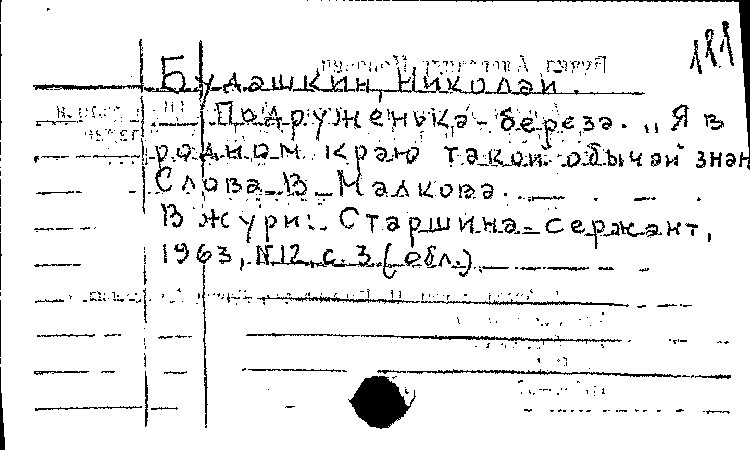 181
Будашкин, Николай.
Подруженька-береза. „Я в
родном краю такой обычай знаю
Слова В. Малкова.
В журн.: Старшина-сержант,
1963, №12, с. 3 (обл.).